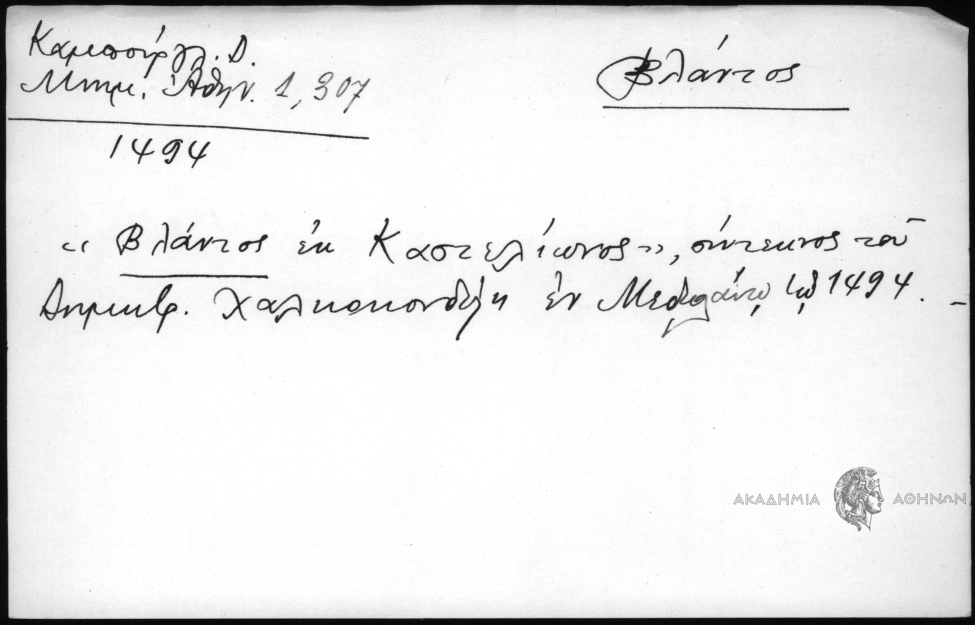 Καμπούρογλ. Δ.
Μνημ. Ἀθην. 1, 307
1494
Βλάντος
"Βλάντος ἐκ Καστελίωνος", σύντεκνος τοῦ
Δημητρ. Χαλκοκονδύλη ἐν Μεδιολάνῳ τῷ 1494. –
ΑΚΑΔΗΜΙΑ ΑΘΗΝΩΝ